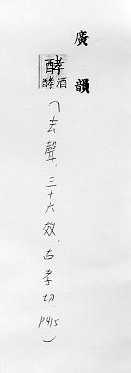 廣韻
酵
酵酒
(去聲,三十六效,古孝切 P415)